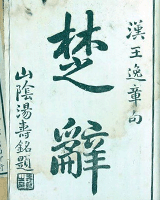 漢王逸章句
楚辭
山陰湯壽銘題